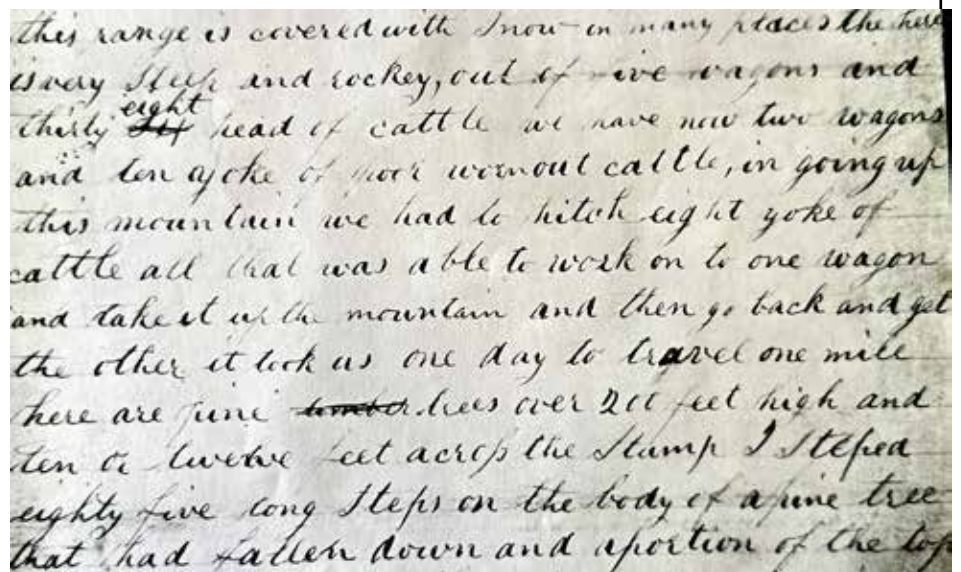 this range is covered with Snow in many places the here
is very Steep and rockey, out of five wagons and
thirty eight head of cattle we have now two wagons
and ten ayoke of poor wornout cattle, in going up
this mountain we had to hitch eight yoke of
cattle all that was able to work on to one wagon
and take it up the mountain and then go back and get
the other it took us one day to travel one mile
here are pine timber trees over 200 feet high and
ten or twelve feet across the Stump I Steped
eighty five long Steps on the body of a pine tree
that had fallen down and aportion of the top